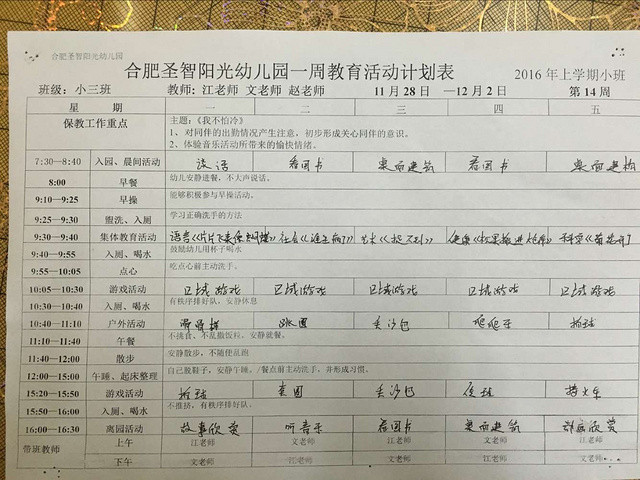 合肥圣智阳光幼儿园
合肥圣智阳光幼儿园一周教育活动计划表 2016年上学期小班
班级：小三班 教师：江老师 文老师 赵老师 11月28日 —12月2日 第14周
星 期 一 二 三 四 五
保教工作重点 主题：《我不怕冷》
1、对同伴的出勤情况产生注意，初步形成关心同伴的意识。
2、体验音乐活动所带来的愉快情绪。
7:30—8:40 入园、晨间活动 谈话 看图书 桌面建筑 看图书 桌面建构
8:00 早餐 幼儿安静进餐，不大声说话。
9:10—9:25 早操 能够积极参与早操活动。
9:25—9:30 盥洗、入厕 学习正确洗手的方法
9:30—9:40 集体教育活动 语言《片片飞来像蝴蝶》 社会《谁生病了》 艺术 健康 科学
9:40—9:55 入厕、喝水 鼓励幼儿用杯子喝水
9:55—10:05 点心 吃点心前主动洗手。
10:05—10:30 游戏活动 区域游戏 区域游戏 区域游戏 区域游戏 区域游戏
10:30—10:40 入厕、喝水 有秩序排好队，安静休息
10:40—11:10 户外活动 滑滑梯 跳圈 丢沙包 爬爬乐 拍球
11:10—11:40 午餐 不挑食、不乱撒饭粒，安静就餐。
11:40—12:00 散步 安静散步，不随便乱跑
12:00—15:00 午睡、起床整理 自己脱鞋子，安静午睡。/餐点前主动洗手，并形成习惯。
15:20—15:50 游戏活动 拍球 丢沙包 开火车
15:50—16:00 入厕、喝水 不推挤，有秩序排好队。
16:00—16:30 离园活动 故事欣赏 听音乐 看图书 桌面建筑 欣赏
带班教师 上午 江老师 文老师 江老师 文老师 江老师
下午 文老师 江老师 文老师 江老师 文老师